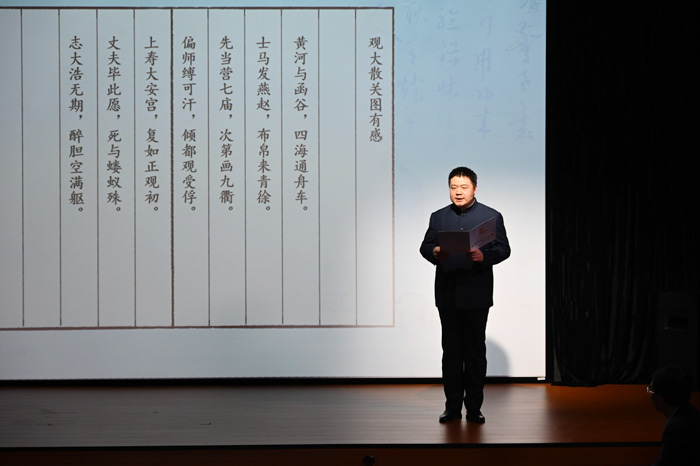 观大散关图有感
黄河与函谷，四海通舟车。
士马发燕赵，布帛来青徐。
先当营七庙，次第画九衢。
偏师缚可汗，倾都观受俘。
上寿大安宫，复如正观初。
丈夫毕此愿，死与蝼蚁殊。
志大浩无期，醉胆空满躯。